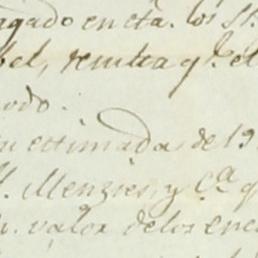 agado en cta. los Sr.
bel, resulta q.e él
odo.
su estimada de 19
Menzies y Ca. q
valor de los enc